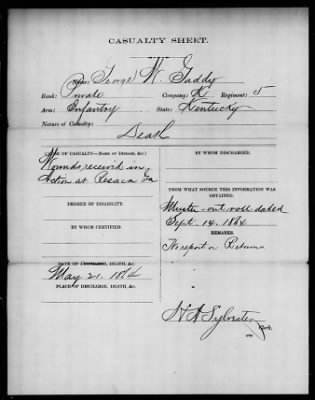 CASUALTY SHEET.
Name: George W. Gaddy
Rank: Private Company: K Regiment: 5
Arm: Infantry State: Kentucky
Nature of Casualty:
Death
CAUSE OF CASUALTY—(NAME OF DISEASE, &c.)
Wounds received in
action at Resaca Ga
DEGREE OF DISABILITY.
BY WHOM CERTIFIED
DATE OF DISCHARGE, DEATH, &c.
May 21. 1864
PLACE OF DISCHARGE, DEATH, &c.
BY WHOM DISCHARGED.
FROM WHAT SOURCE THIS INFORMATION WAS
OBTAINED.
Muster-out roll dated
Sept. 14. 1864
REMARKS.
No report on Returns
Sylvester
Clerk.